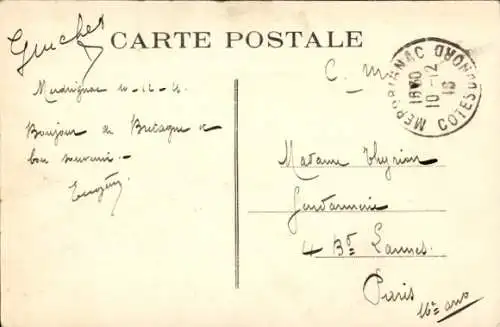 Guiches
CARTE POSTALE
C. M.
MERDRIGNAC COTES DU NORD
18 30
10-12
16
Merdrignac 10-12-
Bonjour de Bretagne &
bon souvenir.-
Madame Thyrion
Gendarmerie
4 Bd Lannes.
Paris
16e arro